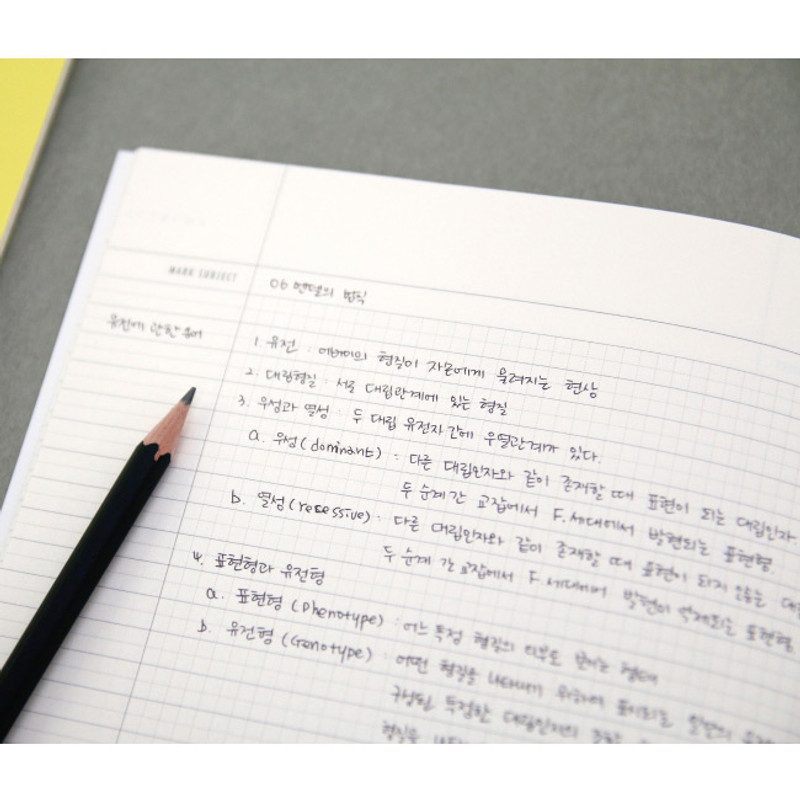 MARK SUBJECT
06 멘델의 법칙
유전에 관한 용어
1. 유전 : 어버이의 형질이 자손에게 물려지는 현상
2. 대립형질 : 서로 대립관계에 있는 형질
3. 우성과 열성 : 두 대립 유전자 간에 우열관계가 있다.
a. 우성(dominant) : 다른 대립인자와 같이 존재할 때 표현이 되는 대립인자
두 순계 간 교잡에서 F1 세대에서 발현되는 표현형.
b. 열성(recessive) : 다른 대립인자와 같이 존재할 때 표현이 되지 않는
두 순계 간 교잡에서 F1 세대에서 발현이 억제되는 표현형.
4. 표현형과 유전형
a. 표현형 (Phenotype) : 어느 특정 형질의 외부로 보이는 형태
b. 유전형 (Genotype) : 어떤 형질을 나타내기 위하여 표시되는 일련의
구성된 특정한 대립인자의
형질을